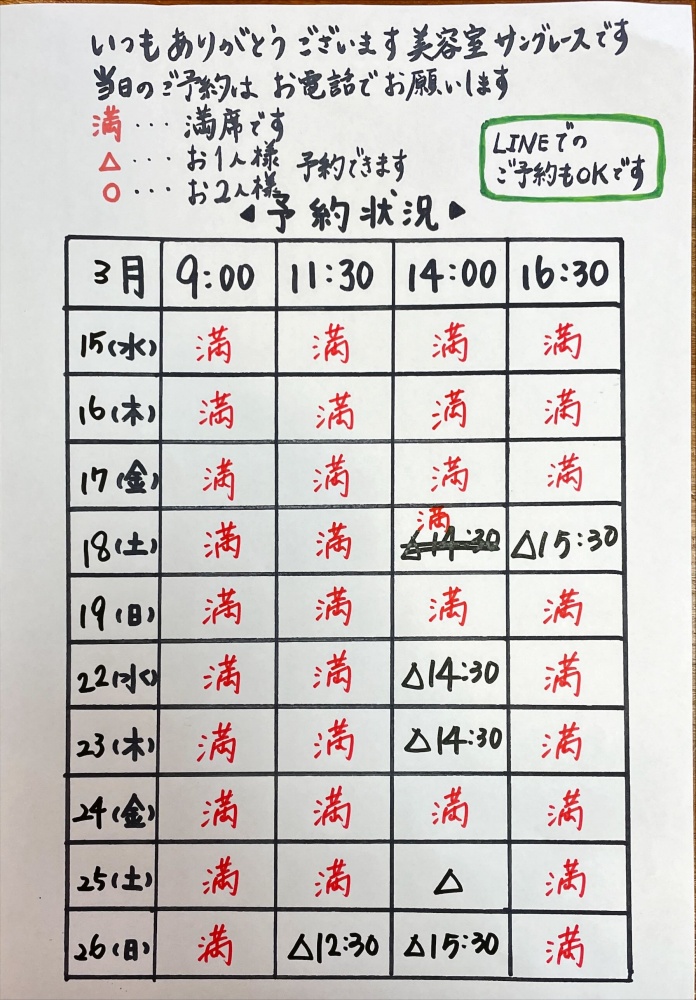 いつもありがとうございます美容室サングレースです
当日のご予約は お電話でお願いします
満・・・満席です
△・・・お1人様 予約できます
○・・・お2人様
LINEでの
ご予約もOKです
◀予約状況▶
3月 9:00 11:30 14:00 16:30
15(水) 満 満 満 満
16(木) 満 満 満 満
17(金) 満 満 満 満
18(土) 満 満 満 △14:30 △15:30
19(日) 満 満 満 満
22(水) 満 満 △14:30 満
23(木) 満 満 △14:30 満
24(金) 満 満 満 満
25(土) 満 満 △ 満
26(日) 満 △12:30 △15:30 満